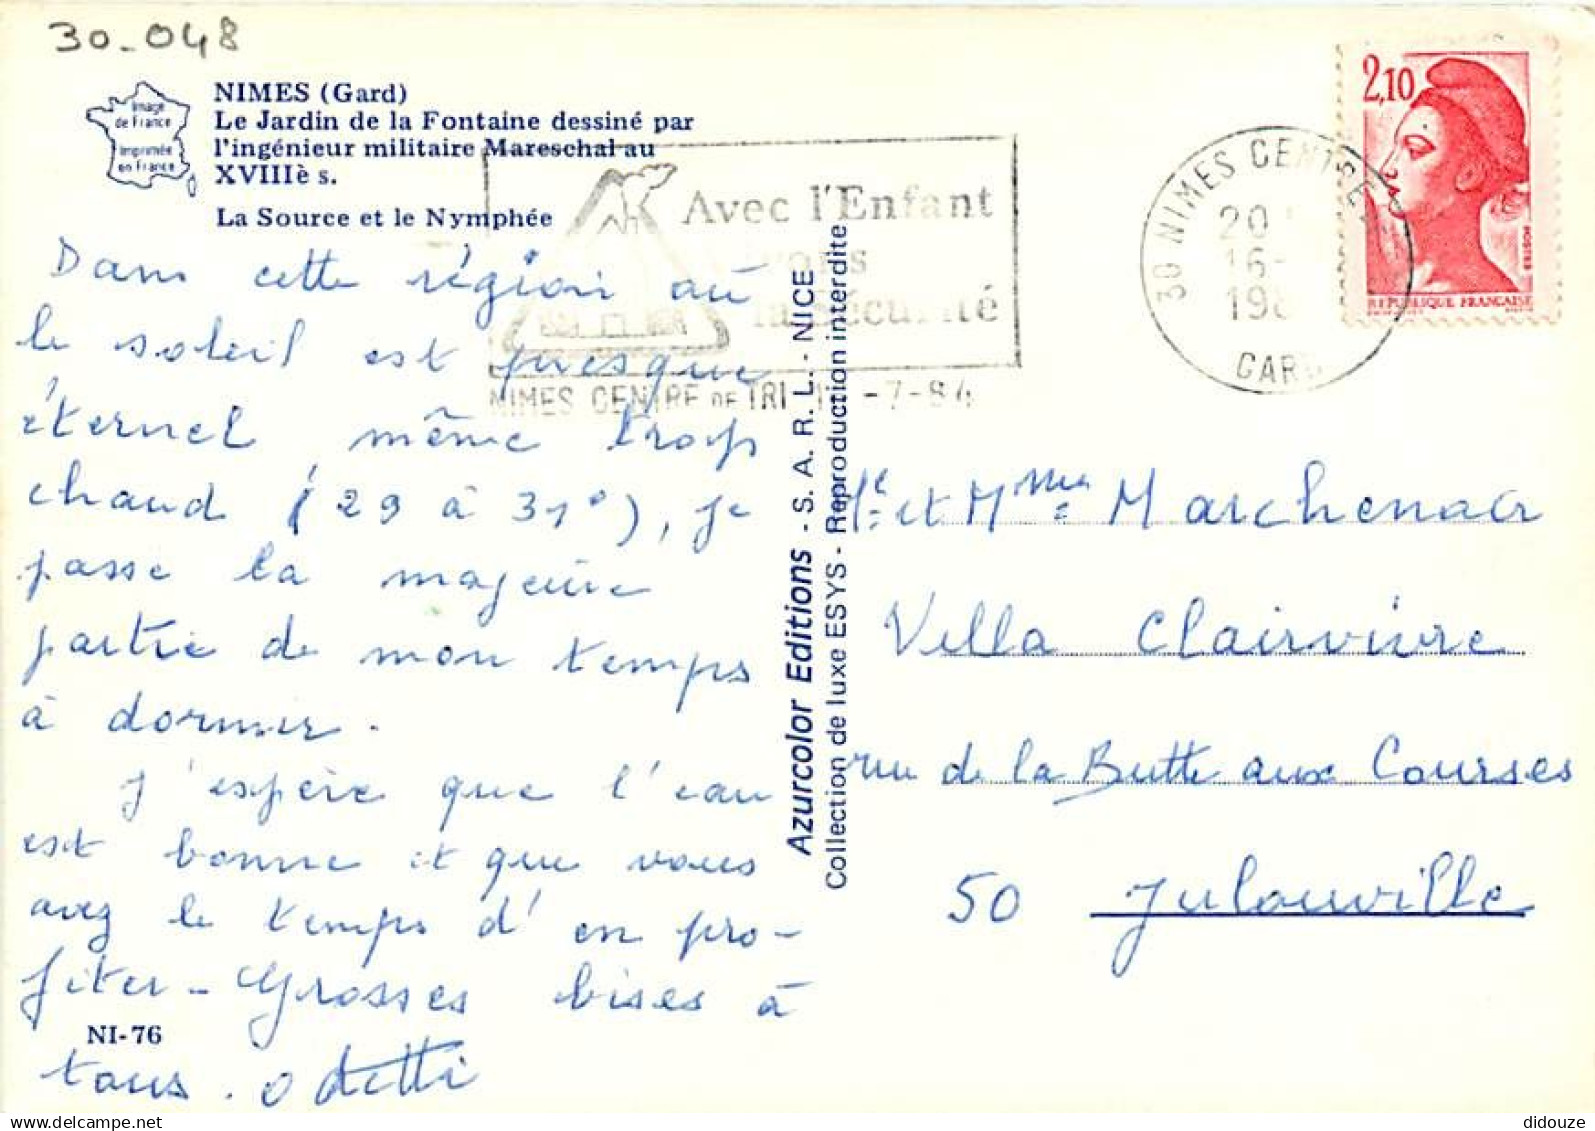 30-048
Image
de France
Imprimée
en France
NIMES (Gard)
Le Jardin de la Fontaine dessiné par
l'ingénieur militaire Mareschal au
XVIIIè s.
La Source et le Nymphée
Avec l'Enfant
la Sécurité
NIMES CENTRE DE TRI -7-84
30 NIMES CENTRE
20
16-
198
GARD
2,10
HOSTEIN
REPUBLIQUE FRANÇAISE
Dans cette région où
le soleil est presque
éternel même trop
chaud (29 à 31°), je
passe la majeure
partie de mon temps
à dormir.
J'espère que l'eau
est bonne et que vous
avez le temps d'en pro-
fiter - Grosses bises à
tous. Odette
NI-76
Azurcolor Editions - S. A. R. L. - NICE
Collection de luxe ESYS - Reproduction interdite
et Marchenoir
Villa Clairvivre
rue de la Butte aux Courses
50 Julouville
didouze